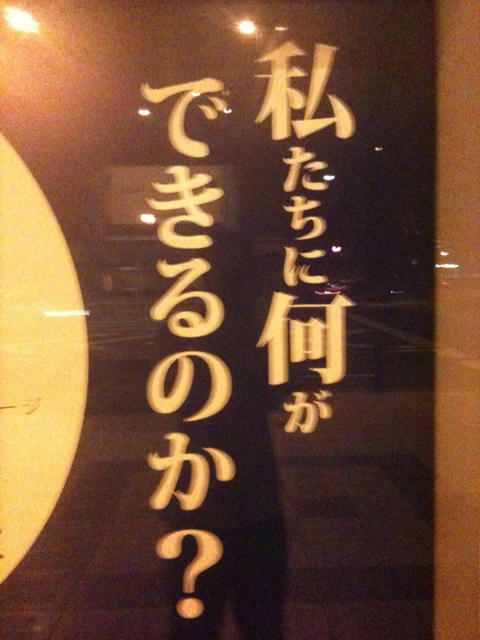 私たちに何が
できるのか？
ージ